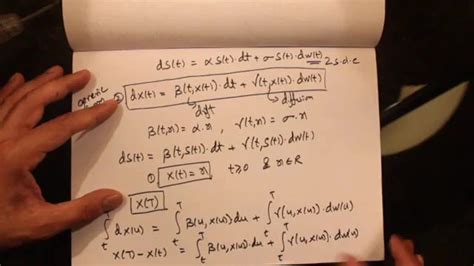 ds(t) = α s(t)·dt + σ s(t)·dw(t) → s.d.e
generic
② dx(t) = β(t,x(t))·dt + γ(t,x(t))·dw(t)
drift diffusion
β(t,x) = α·x, γ(t,x) = σ·x
ds(t) = β(t,s(t))·dt + γ(t,s(t))·dw(t)
① x(t) = x t≥0 & x∈R
x(T)
∫ₜᵀ dx(u) = ∫ₜᵀ β(u,x(u))du + ∫ₜᵀ γ(u,x(u))·dw(u)
x(T) - x(t) = ∫ₜᵀ β(u,x(u)·du + ∫ₜᵀ γ(u,x(u))·dw(u)